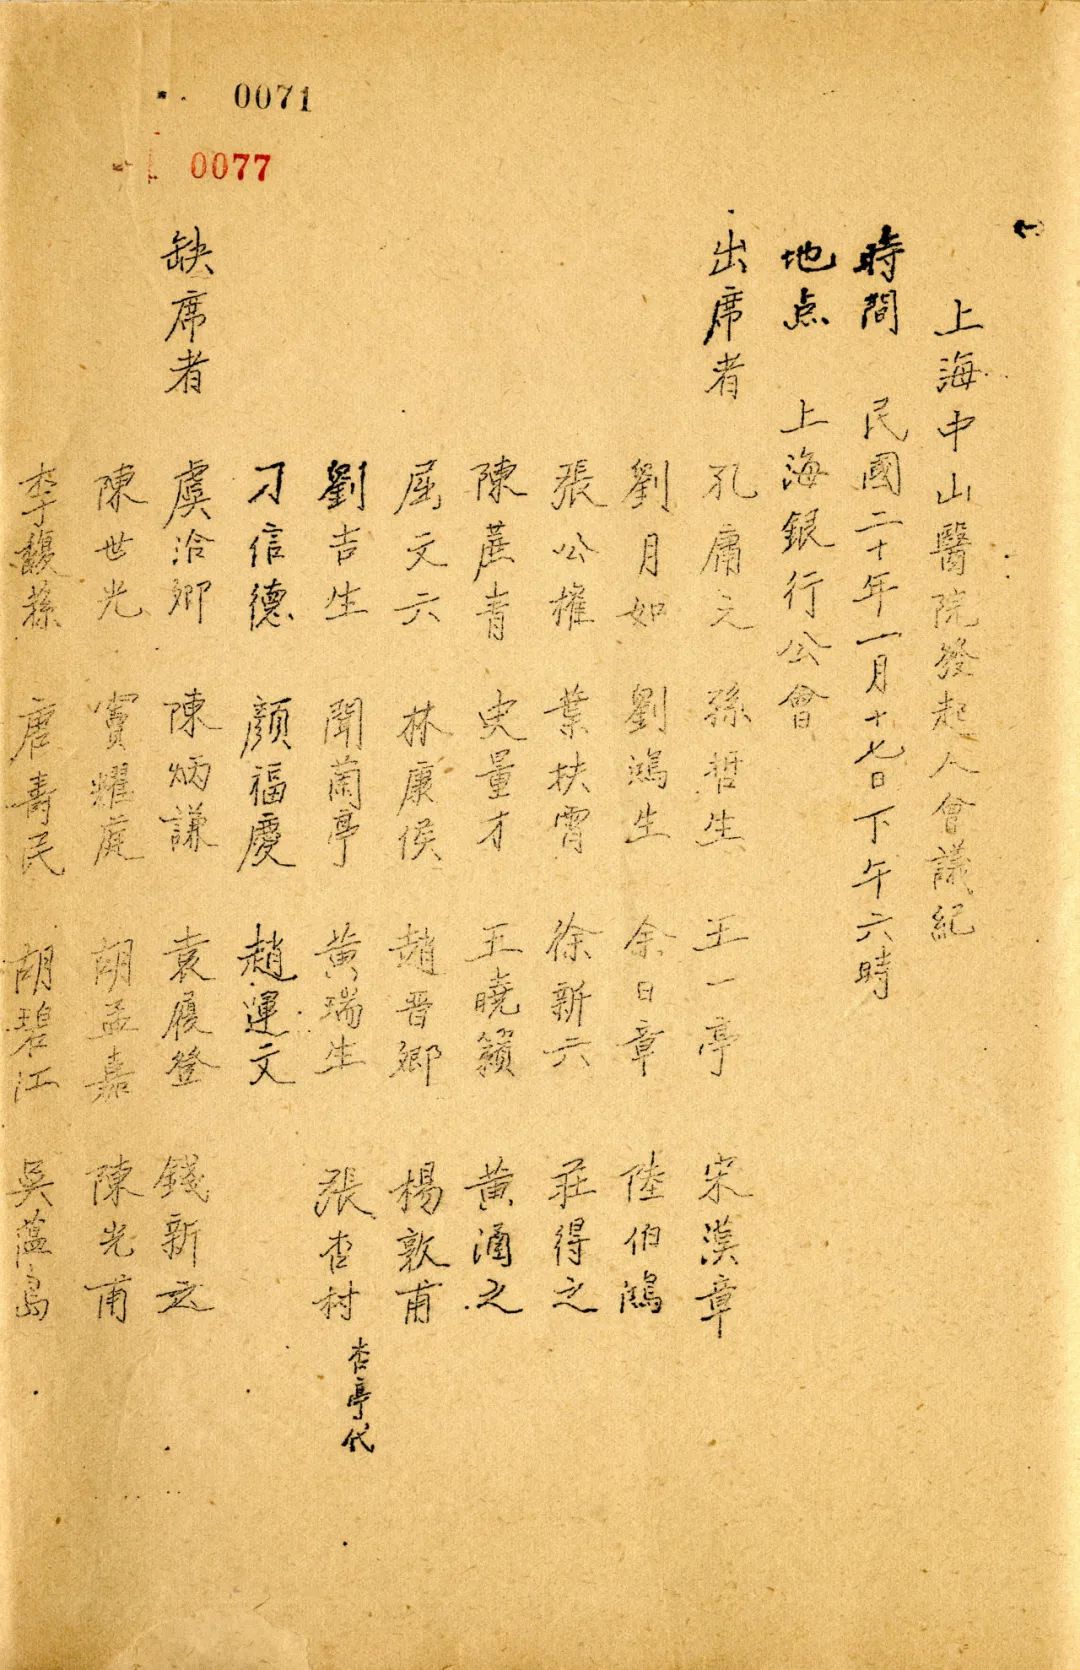 0071
0077
上海中山醫院發起人會議紀
時間 民國二十年一月十七日下午六時
地点 上海銀行公會
出席者 孔庸之 孫哲生 王一亭 宋漢章
劉月如 劉鴻生 余日章 陸伯鴻
張公權 葉扶霄 徐新六 莊得之
陳蔗青 史量才 王曉籟 黃涵之
屈文六 林康侯 趙晋卿 楊敦甫
劉吉生 聞蘭亭 黃瑞生 張杏村 杏亭代
刁信德 顏福慶 趙運文
缺席者 虞洽卿 陳炳謙 袁履登 錢新之
陳世光 竇耀庭 胡孟嘉 陳光甫
李馥蓀 唐壽民 胡碧江 吳蘊齋